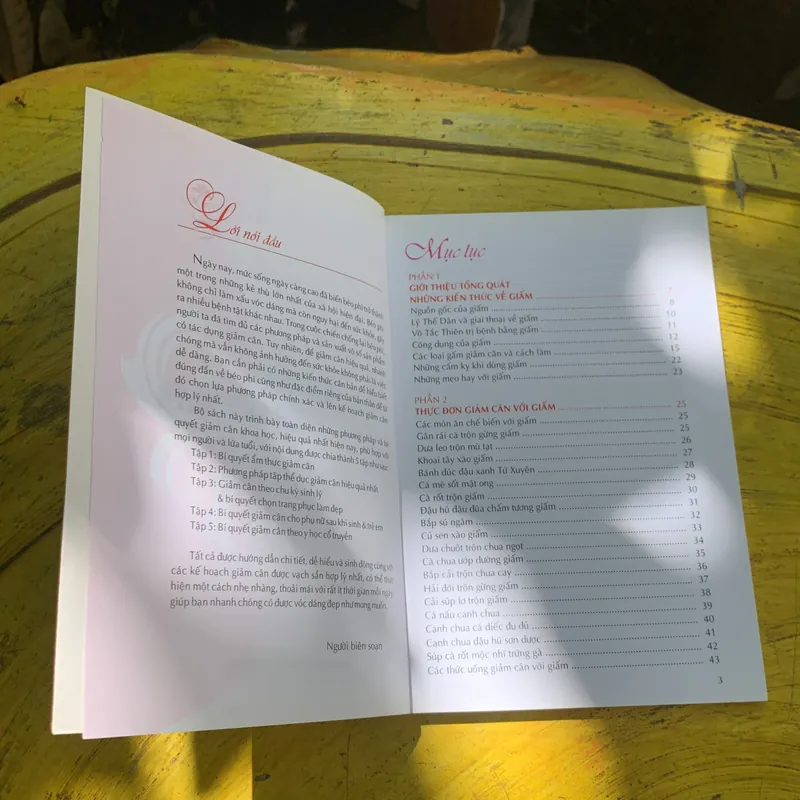 Lời nói đầu
Ngày nay, mức sống ngày càng cao đã biến béo phì trở thành
một trong những kẻ thù lớn nhất của xã hội hiện đại. Béo phì
không chỉ làm xấu vóc dáng mà còn nguy hại đến sức khỏe, gây
ra nhiều bệnh tật khác nhau. Trong cuộc chiến chống lại béo phì,
người ta đã tìm đủ các phương pháp và sản xuất vô số sản phẩm
có tác dụng giảm cân. Tuy nhiên, để giảm cân hiệu quả, nhanh
chóng mà vẫn không ảnh hưởng đến sức khỏe không phải là việc
dễ dàng. Bạn cần phải có những kiến thức căn bản để hiểu biết
đúng đắn về béo phì cũng như đặc điểm riêng của bản thân để từ
đó chọn lựa phương pháp chính xác và lên kế hoạch giảm cân
hợp lý nhất.
Bộ sách này trình bày toàn diện những phương pháp và bí
quyết giảm cân khoa học, hiệu quả nhất hiện nay, phù hợp với
mọi người và lứa tuổi, với nội dung được chia thành 5 tập như sau:
Tập 1: Bí quyết ẩm thực giảm cân
Tập 2: Phương pháp tập thể dục giảm cân hiệu quả nhất
Tập 3: Giảm cân theo chu kỳ sinh lý
& bí quyết chọn trang phục làm đẹp
Tập 4: Bí quyết giảm cân cho phụ nữ sau khi sinh & trẻ em
Tập 5: Bí quyết giảm cân theo y học cổ truyền
Tất cả được hướng dẫn chi tiết, dễ hiểu và sinh động cùng với
các kế hoạch giảm cân được vạch sẵn hợp lý nhất, có thể thực
hiện một cách nhẹ nhàng, thoải mái với rất ít thời gian mỗi ngày
giúp bạn nhanh chóng có được vóc dáng đẹp như mong muốn.
Người biên soạn
Mục lục
PHẦN 1
GIỚI THIỆU TỔNG QUÁT
NHỮNG KIẾN THỨC VỀ GIẤM 7
Nguồn gốc của giấm 8
Lý Thế Dân và giai thoại về giấm 10
Võ Tắc Thiên trị bệnh bằng giấm 11
Công dụng của giấm 12
Các loại gấm giảm cân và cách làm 15
Những cấm kỵ khi dùng giấm 22
Những mẹo hay với giấm 23
PHẦN 2
THỰC ĐƠN GIẢM CÂN VỚI GIẤM 25
Các món ăn chế biến với giấm 25
Gân rái cá trộn gừng giấm 25
Dưa leo trộn mù tạt 26
Khoai tây xào giấm 27
Bánh đúc đậu xanh Tứ Xuyên 28
Cá mè sốt mật ong 29
Cà rốt trộn giấm 30
Đậu hủ đậu đũa chấm tương giấm 31
Bắp sú ngâm 32
Củ sen xào giấm 33
Dưa chuột trộn chua ngọt 34
Cà chua ướp đường giấm 35
Bắp cải trộn chua cay 36
Hải đới trộn gừng giấm 37
Cải súp lơ trộn giấm 38
Cá nấu canh chua 39
Canh chua cá diếc đu đủ 40
Canh chua đậu hủ sơn dược 41
Súp cà rốt mộc nhĩ trứng gà 42
Các thức uống giảm cân với giấm 43
3